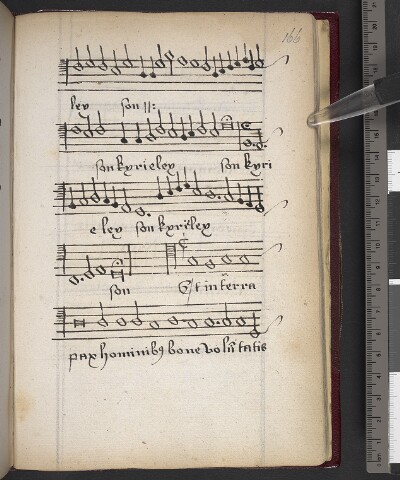 166
ley son ij:
son kyrieley son kyri
e ley son kyrieley
son Et in terra
pax hominibꝯ bone volūtatis